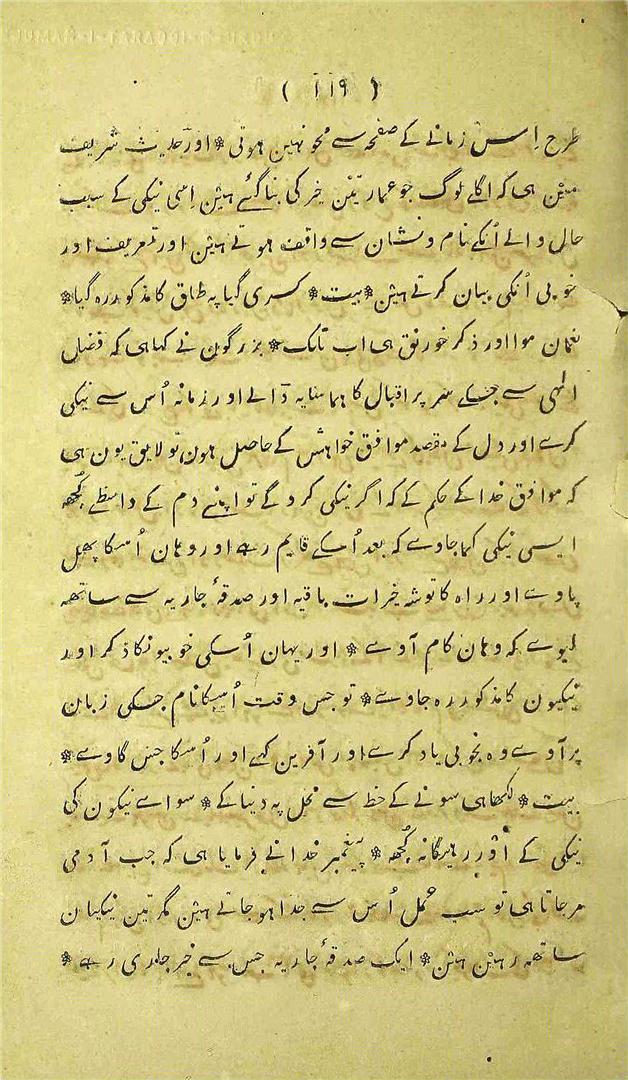 ( ١١٩ )
طرح اِس زمانے کے صفحہ سے محو نہین ہوتی * اور حدیث شریف
مین ہی کہ اگلے لوگ جو عمارتین خیر کی بنا گئے ہین اِسی نیکی کے سبب
حال والے اُنکے نام و نشان سے واقف ہوتے ہین اور تعریف اور
خوبی اُنکی بیان کرتے ہین * بیت * کسری گیا پہ طاق کا مذکور رہ گیا *
نعمان موا اور ذکر خورنق ہی اب تلک * بزرگون نے کہا ہی کہ فضل
الٰہی سے جسکے سر پر اقبال کا ہما سایہ ڈالے اور زمانہ اُس سے نیکی
کرے اور دل کے مقصد موافق خواہش کے حاصل ہون تو لایق یون ہی
کہ موافق خدا کے حکم کے کہ اگر نیکی کروگے تو اپنے دم کے واسطے کچھ
ایسی نیکی کما جاوے کہ بعد اُسکے قایم رہے اور وہان اُسکا پھل
پاوے اور راہ کا توشہ خیرات باقیہ اور صدقۂ جاریہ سے ساتھہ
لیوے کہ وہان کام آوے * اور یہان اُسکی خوبیونکا ذکر اور
نیکیون کا مذکور رہ جاوے * تو جس وقت اُسکا نام جسکی زبان
پر آوے وہ بخوبی یاد کرے اور آفرین کہے اور اُسکا جس گاوے *
بیت * لکھا ہی سونے کے خط سے محل پہ دنیا کے * سواے نیکون کی
نیکی کے اَور رہیگا نہ کُچھ * پیغمبر خدا نے فرمایا ہی کہ جب آدمی
مر جاتا ہی تو سب عمل اُس سے جدا ہو جاتے ہین مگر تین نیکیان
ساتھہ رہین ہین * ایک صدقۂ جاریہ جس سے خیر جاری رہے *